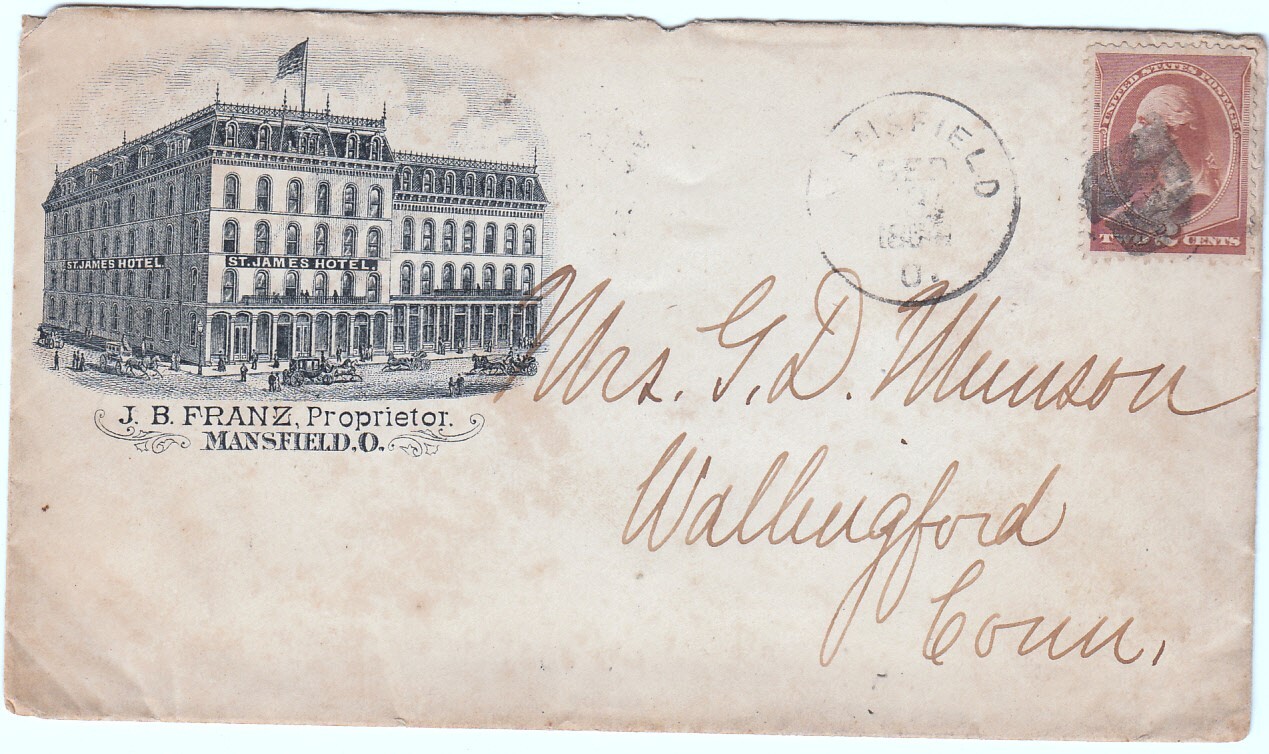 ST. JAMES HOTEL.
ST. JAMES HOTEL.
J. B. FRANZ, Proprietor.
MANSFIELD, O.
MANSFIELD
SEP
O.
UNITED STATES POSTAGE
TWO 2 CENTS
Mrs. G. D. Munson
Wallingford
Conn.